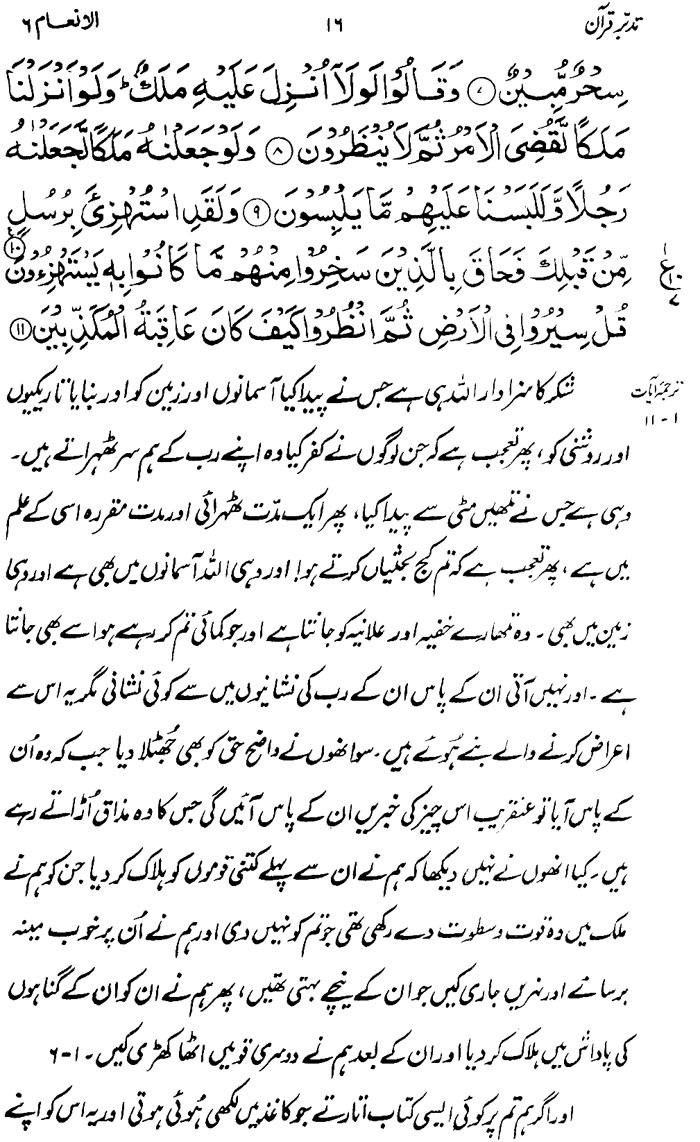 تدبّر قرآن ۱۶ الانعام ۶
سِحْرٌ مُّبِيْنٌ ۷ وَقَالُوْا لَوْلَآ اُنْزِلَ عَلَيْهِ مَلَكٌ ؕ وَلَوْ اَنْزَلْنَا
مَلَكًا لَّقُضِيَ الْاَمْرُ ثُمَّ لَا يُنْظَرُوْنَ ۸ وَلَوْ جَعَلْنٰهُ مَلَكًا لَّجَعَلْنٰهُ
رَجُلًا وَّلَلَبَسْنَا عَلَيْهِمْ مَّا يَلْبِسُوْنَ ۹ وَلَقَدِ اسْتُهْزِئَ بِرُسُلٍ
مِّنْ قَبْلِكَ فَحَاقَ بِالَّذِيْنَ سَخِرُوْا مِنْهُمْ مَّا كَانُوْا بِهٖ يَسْتَهْزِءُوْنَ ۱۰
ع ۱۰ ۷
قُلْ سِيْرُوْا فِي الْاَرْضِ ثُمَّ انْظُرُوْا كَيْفَ كَانَ عَاقِبَةُ الْمُكَذِّبِيْنَ ۱۱
ترجمۂ آیات
۱-۱۱
شکر کا سزاوار اللہ ہی ہے جس نے پیدا کیا آسمانوں اور زمین کو اور بنایا تاریکیوں
اور روشنی کو، پھر تعجب ہے کہ جن لوگوں نے کفر کیا وہ اپنے رب کے ہم سر ٹھہراتے ہیں۔
وہی ہے جس نے تمھیں مٹی سے پیدا کیا، پھر ایک مدّت ٹھہرائی اور مدت مقررہ اسی کے علم
میں ہے، پھر تعجب ہے کہ تم کج بحثیاں کرتے ہو! اور وہی اللہ آسمانوں میں بھی ہے اور وہی
زمین میں بھی۔ وہ تمھارے خفیہ اور علانیہ کو جانتا ہے اور جو کمائی تم کر رہے ہو اسے بھی جانتا
ہے۔ اور نہیں آتی ان کے پاس ان کے رب کی نشانیوں میں سے کوئی نشانی مگر یہ اس سے
اعراض کرنے والے بنے ہوئے ہیں۔ سو انھوں نے واضح حق کو بھی جُھٹلا دیا جب کہ وہ اُن
کے پاس آیا تو عنقریب اس چیز کی خبریں ان کے پاس آئیں گی جس کا وہ مذاق اُڑاتے رہے
ہیں۔ کیا انھوں نے نہیں دیکھا کہ ہم نے ان سے پہلے کتنی قوموں کو ہلاک کر دیا جن کو ہم نے
ملک میں وہ قوت و سطوت دے رکھی تھی جو تم کو نہیں دی اور ہم نے اُن پر خوب مینہ
برسائے اور نہریں جاری کیں جو ان کے نیچے بہتی تھیں، پھر ہم نے ان کو ان کے گناہوں
کی پاداش میں ہلاک کر دیا اور ان کے بعد ہم نے دوسری قومیں اٹھا کھڑی کیں۔ ۱-۶
اور اگر ہم تم پر کوئی ایسی کتاب اتارتے جو کاغذ میں لکھی ہوئی ہوتی اور یہ اس کو اپنے